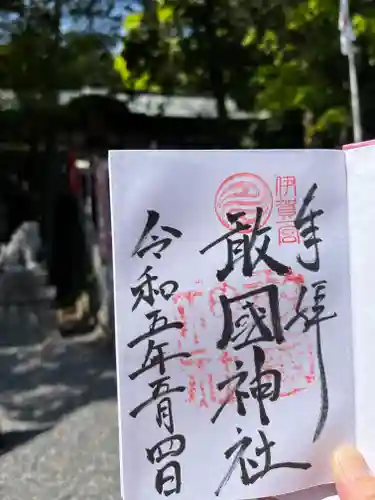 奉拝
伊賀一宮
敢國神社
令和五年五月四日